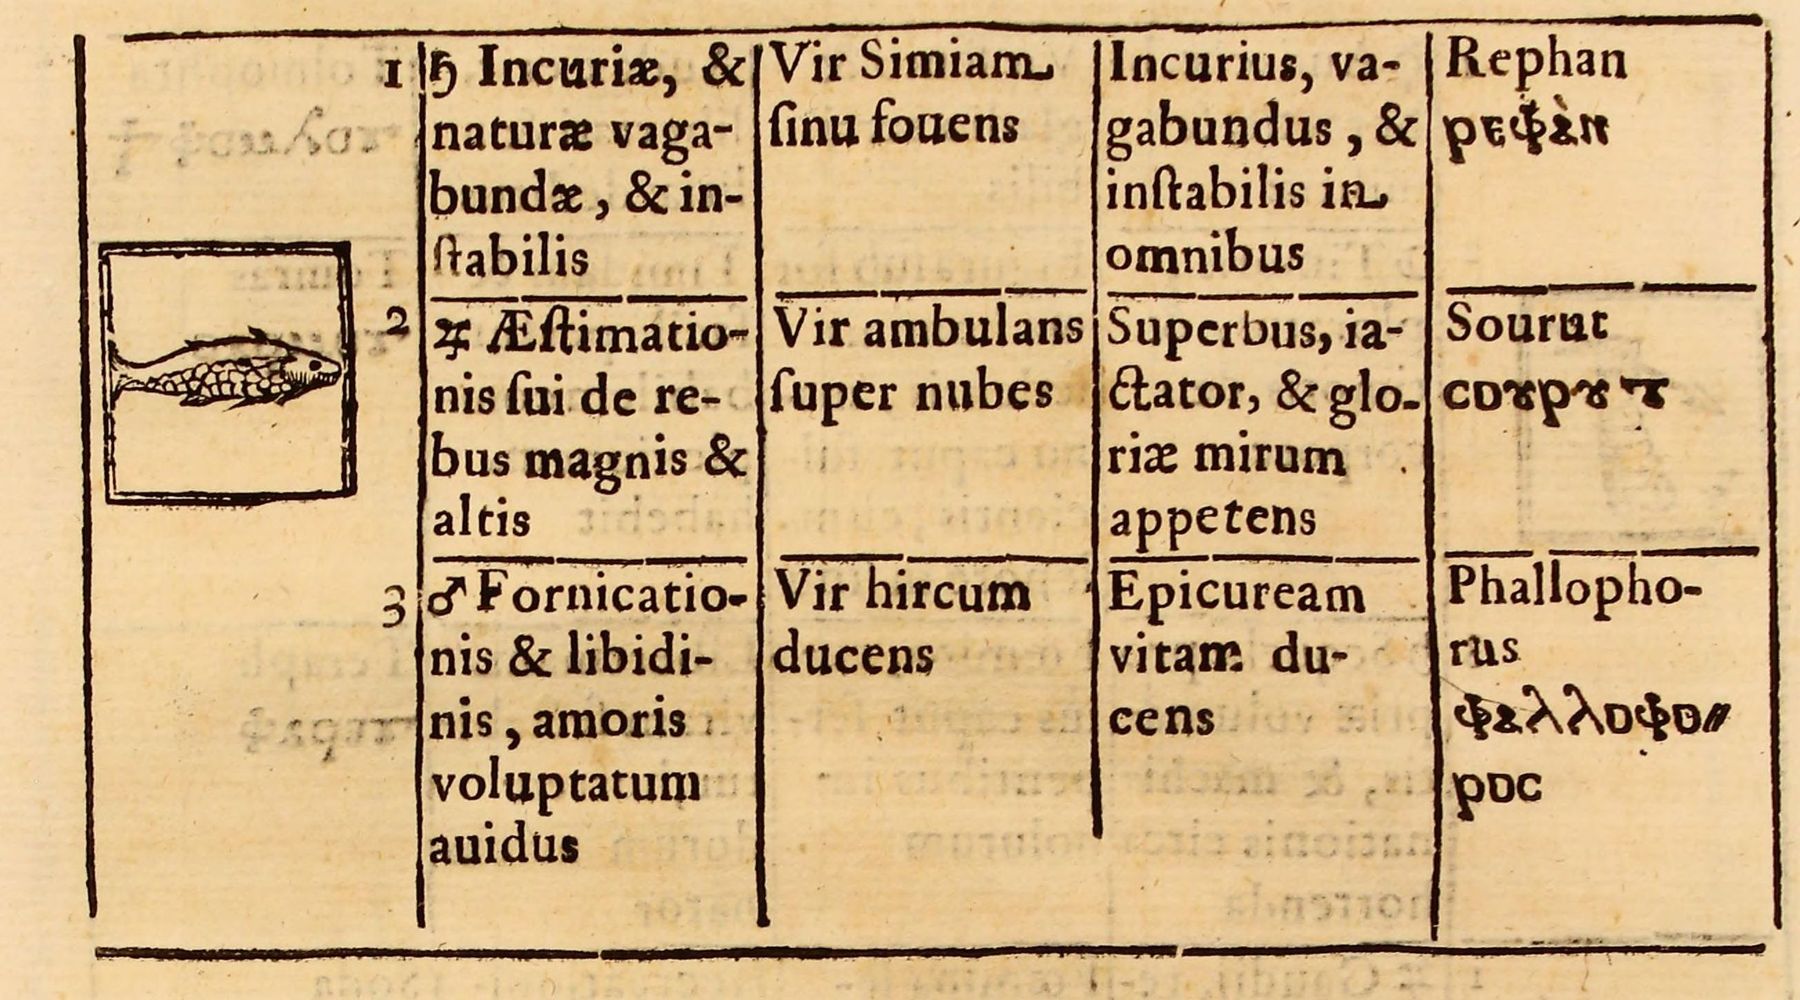 1 ♄ Incuriæ, &
naturæ vaga-
bundæ, & in-
ſtabilis
Vir Simiam
ſinu fouens
Incurius, va-
gabundus, &
inſtabilis in
omnibus
Rephan
ⲣⲉⲫⲁ̀ⲛ
2 ♃ Æſtimatio-
nis ſui de re-
bus magnis &
altis
Vir ambulans
ſuper nubes
Superbus, ia-
ctator, & glo-
riæ mirum
appetens
Sourut
ⲥⲟⲩⲣⲩⲧ
3 ♂ Fornicatio-
nis & libidi-
nis, amoris
voluptatum
auidus
Vir hircum
ducens
Epicuream
vitam du-
cens
Phallopho-
rus
ⲫⲁⲗⲗⲟⲫⲟ⸗
ⲣⲟⲥ